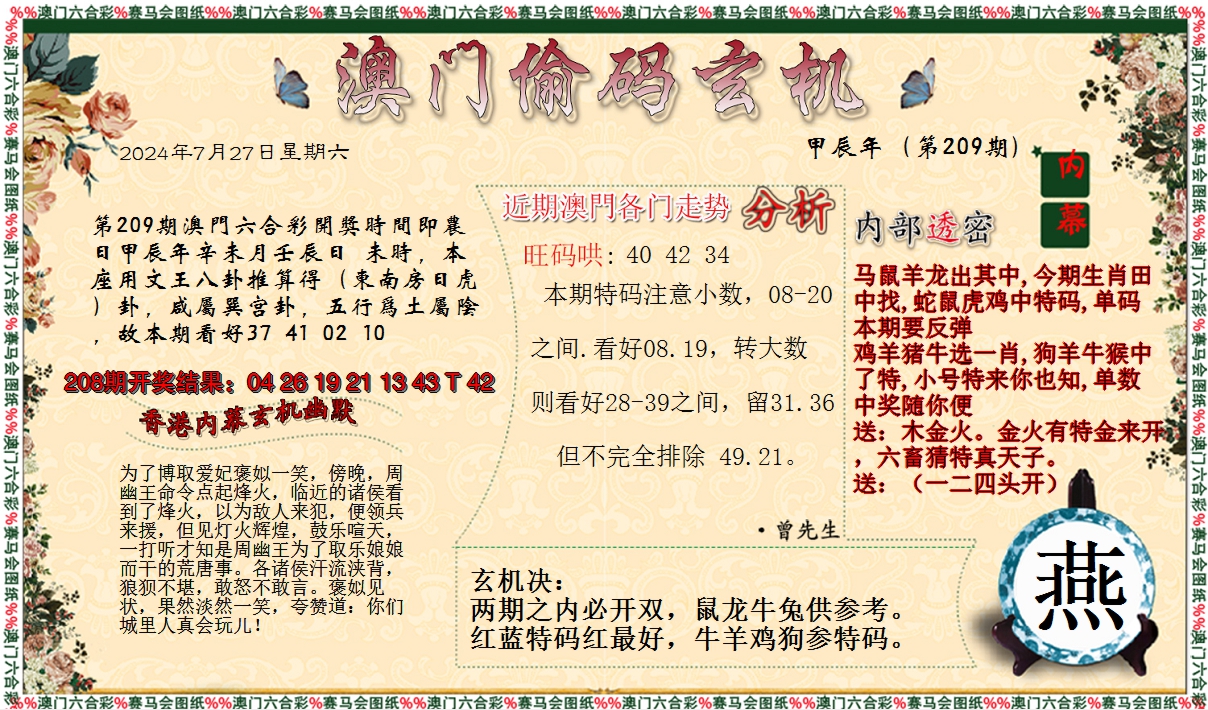 %%澳门六合彩%赛马会图纸%%澳门六合彩%赛马会图纸%%澳门六合彩%赛马会图纸%%澳门六合彩%赛马会图纸%%澳门六合彩%赛马会图纸%%澳门六合彩%赛马会图纸%%
澳门偷码玄机
2024年7月27日星期六
甲辰年（第209期）
内幕
第209期澳門六合彩開獎時間即農
日甲辰年辛未月壬辰日 未時，本
座用文王八卦推算得（東南房日虎
）卦，咸屬巽宫卦，五行爲土屬陰
，故本期看好37 41 02 10
208期开奖结果：04 26 19 21 13 43 T 42
香港内幕玄机幽默
为了博取爱妃褒姒一笑，傍晚，周
幽王命令点起烽火，临近的诸侯看
到了烽火，以为敌人来犯，便领兵
来援，但见灯火辉煌，鼓乐喧天，
一打听才知是周幽王为了取乐娘娘
而干的荒唐事。各诸侯汗流浃背，
狼狈不堪，敢怒不敢言。褒姒见
状，果然淡然一笑，夸赞道：你们
城里人真会玩儿！
近期澳門各门走势 分析
旺码哄：40 42 34
本期特码注意小数，08-20
之间.看好08.19，转大数
则看好28-39之间，留31.36
但不完全排除 49.21。
·曾先生
内部透密
马鼠羊龙出其中,今期生肖田
中找,蛇鼠虎鸡中特码,单码
本期要反弹
鸡羊猪牛选一肖,狗羊牛猴中
了特,小号特来你也知,单数
中奖随你便
送：木金火。金火有特金来开
，六畜猜特真天子。
送：（一二四头开）
玄机决：
两期之内必开双，鼠龙牛兔供参考。
红蓝特码红最好，牛羊鸡狗参特码。
燕
%%澳门六合彩%赛马会图纸%%澳门六合彩%赛马会图纸%%澳门六合彩%赛马会图纸%%澳门六合彩%赛马会图纸%%澳门六合彩%赛马会图纸%%澳门六合彩%赛马会图纸%%